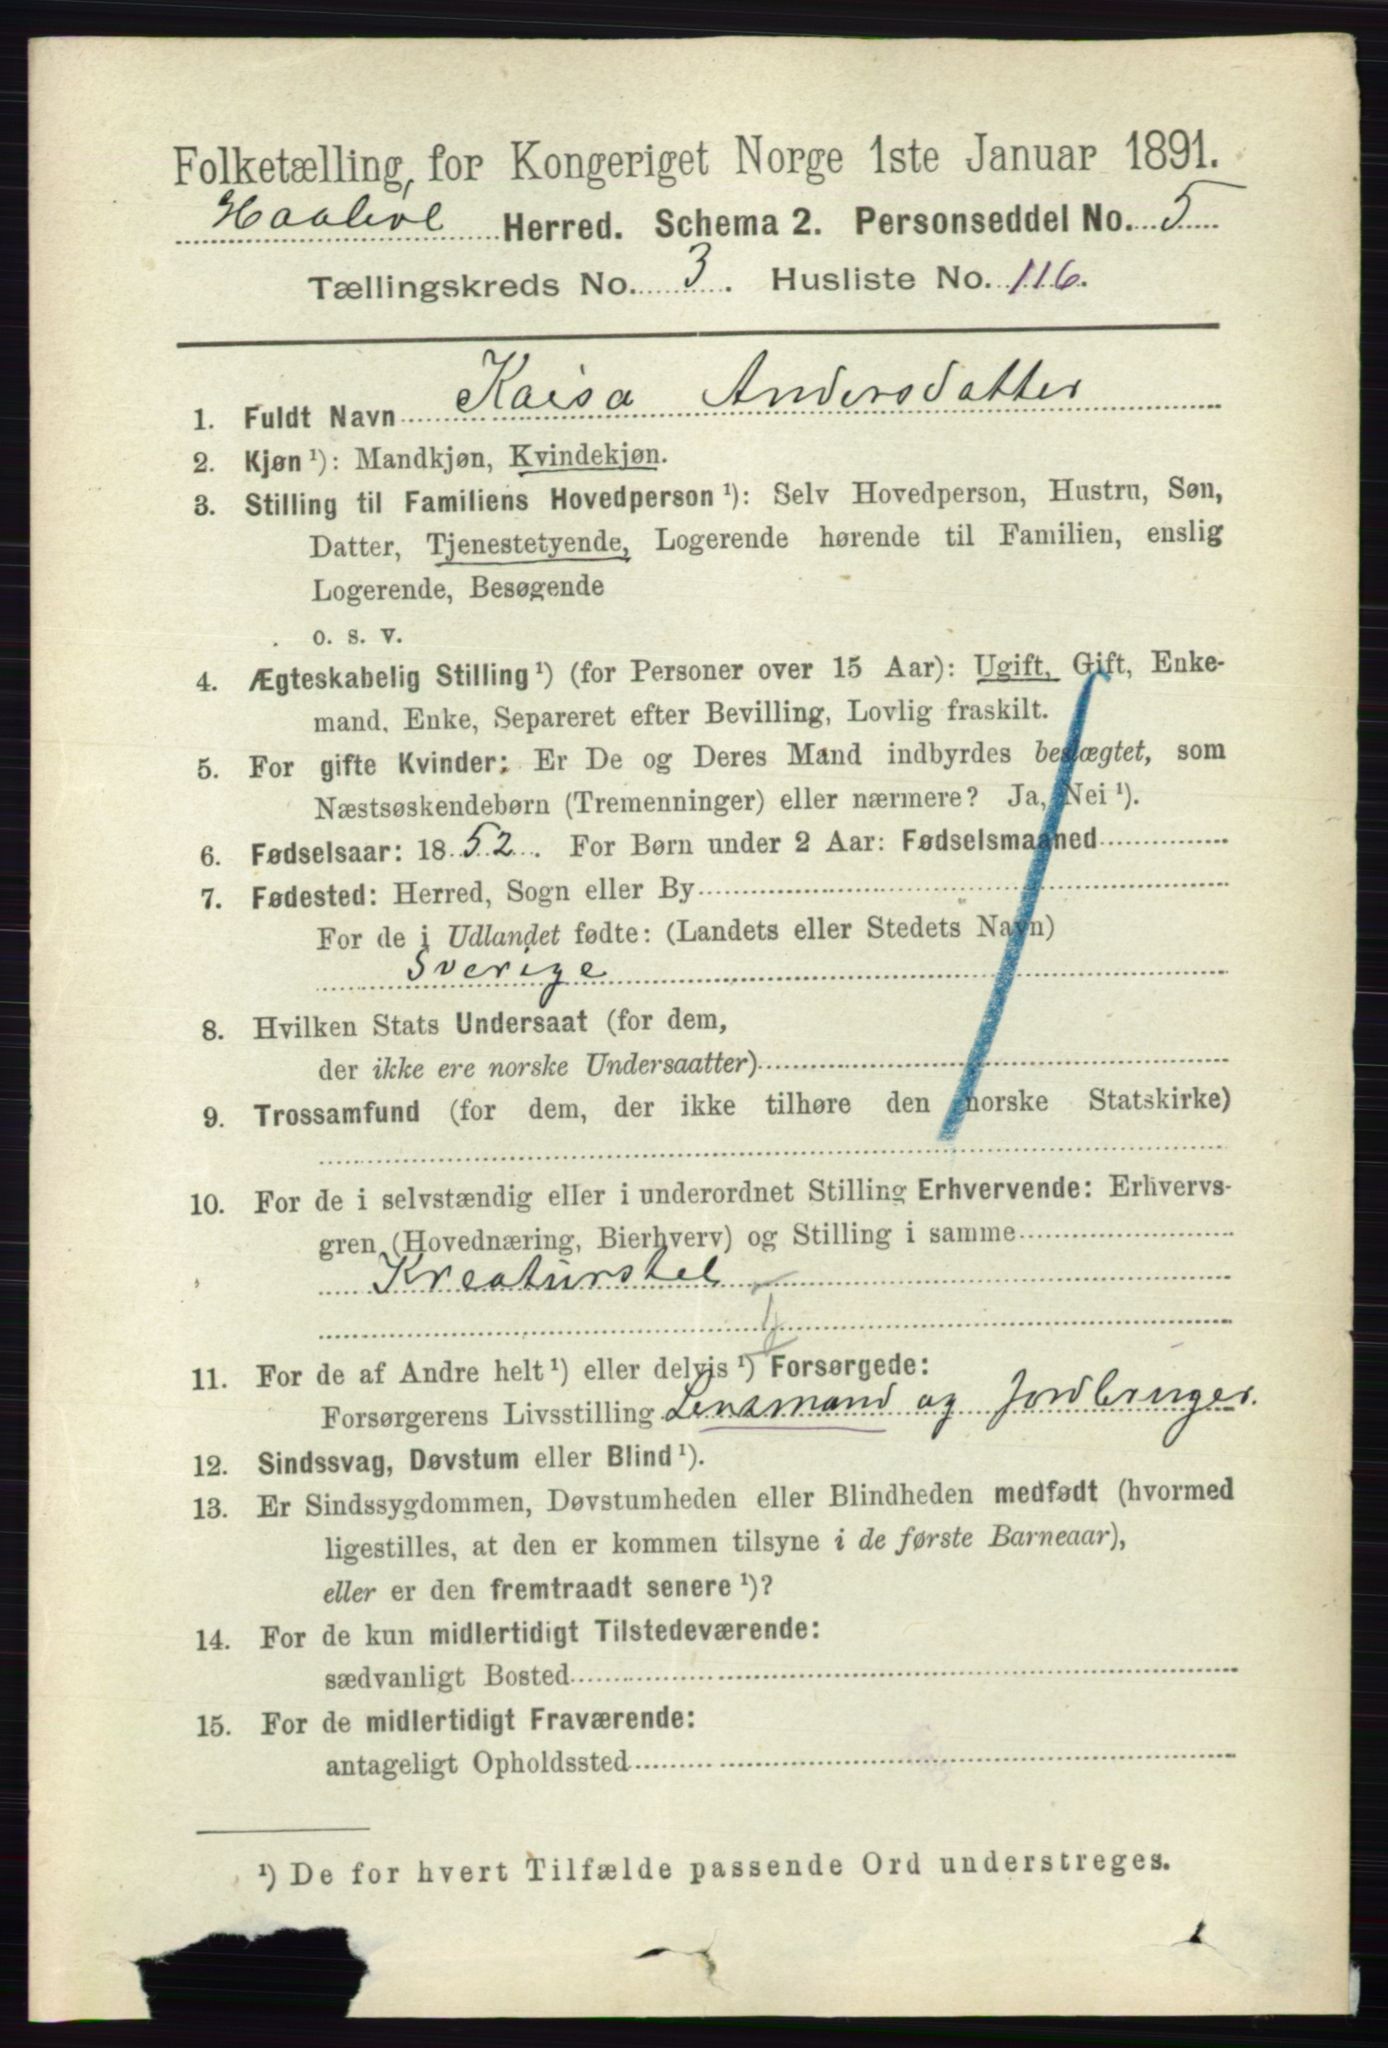 Folketælling for Kongeriget Norge 1ste Januar 1891.
Haabøl Herred. Schema 2. Personseddel No. 5
Tællingskreds No. 3. Husliste No. 116.
1. Fuldt Navn Kaisa Andersdatter
2. Kjøn ¹): Mandkjøn, Kvindekjøn.
3. Stilling til Familiens Hovedperson ¹): Selv Hovedperson, Hustru, Søn,
Datter, Tjenestetyende, Logerende hørende til Familien, enslig
Logerende, Besøgende
o. s. v.
4. Ægteskabelig Stilling ¹) (for Personer over 15 Aar): Ugift, Gift, Enke-
mand, Enke, Separeret efter Bevilling, Lovlig fraskilt.
5. For gifte Kvinder: Er De og Deres Mand indbyrdes beslægtet, som
Næstsøskendebørn (Tremenninger) eller nærmere? Ja, Nei ¹).
6. Fødselsaar: 1852. For Børn under 2 Aar: Fødselsmaaned
7. Fødested: Herred, Sogn eller By
For de i Udlandet fødte: (Landets eller Stedets Navn)
Sverige
8. Hvilken Stats Undersaat (for dem,
der ikke ere norske Undersaatter)
9. Trossamfund (for dem, der ikke tilhøre den norske Statskirke)
10. For de i selvstændig eller i underordnet Stilling Erhvervende: Erhvervs-
gren (Hovednæring, Bierhverv) og Stilling i samme
Kreaturstel
11. For de af Andre helt ¹) eller delvis ¹) Forsørgede:
Forsørgerens Livsstilling Lensmand og Jordbruger.
12. Sindssvag, Døvstum eller Blind ¹).
13. Er Sindssygdommen, Døvstumheden eller Blindheden medfødt (hvormed
ligestilles, at den er kommen tilsyne i de første Barneaar),
eller er den fremtraadt senere ¹)?
14. For de kun midlertidigt Tilstedeværende:
sædvanligt Bosted
15. For de midlertidigt Fraværende:
antageligt Opholdssted
¹) De for hvert Tilfælde passende Ord understreges.